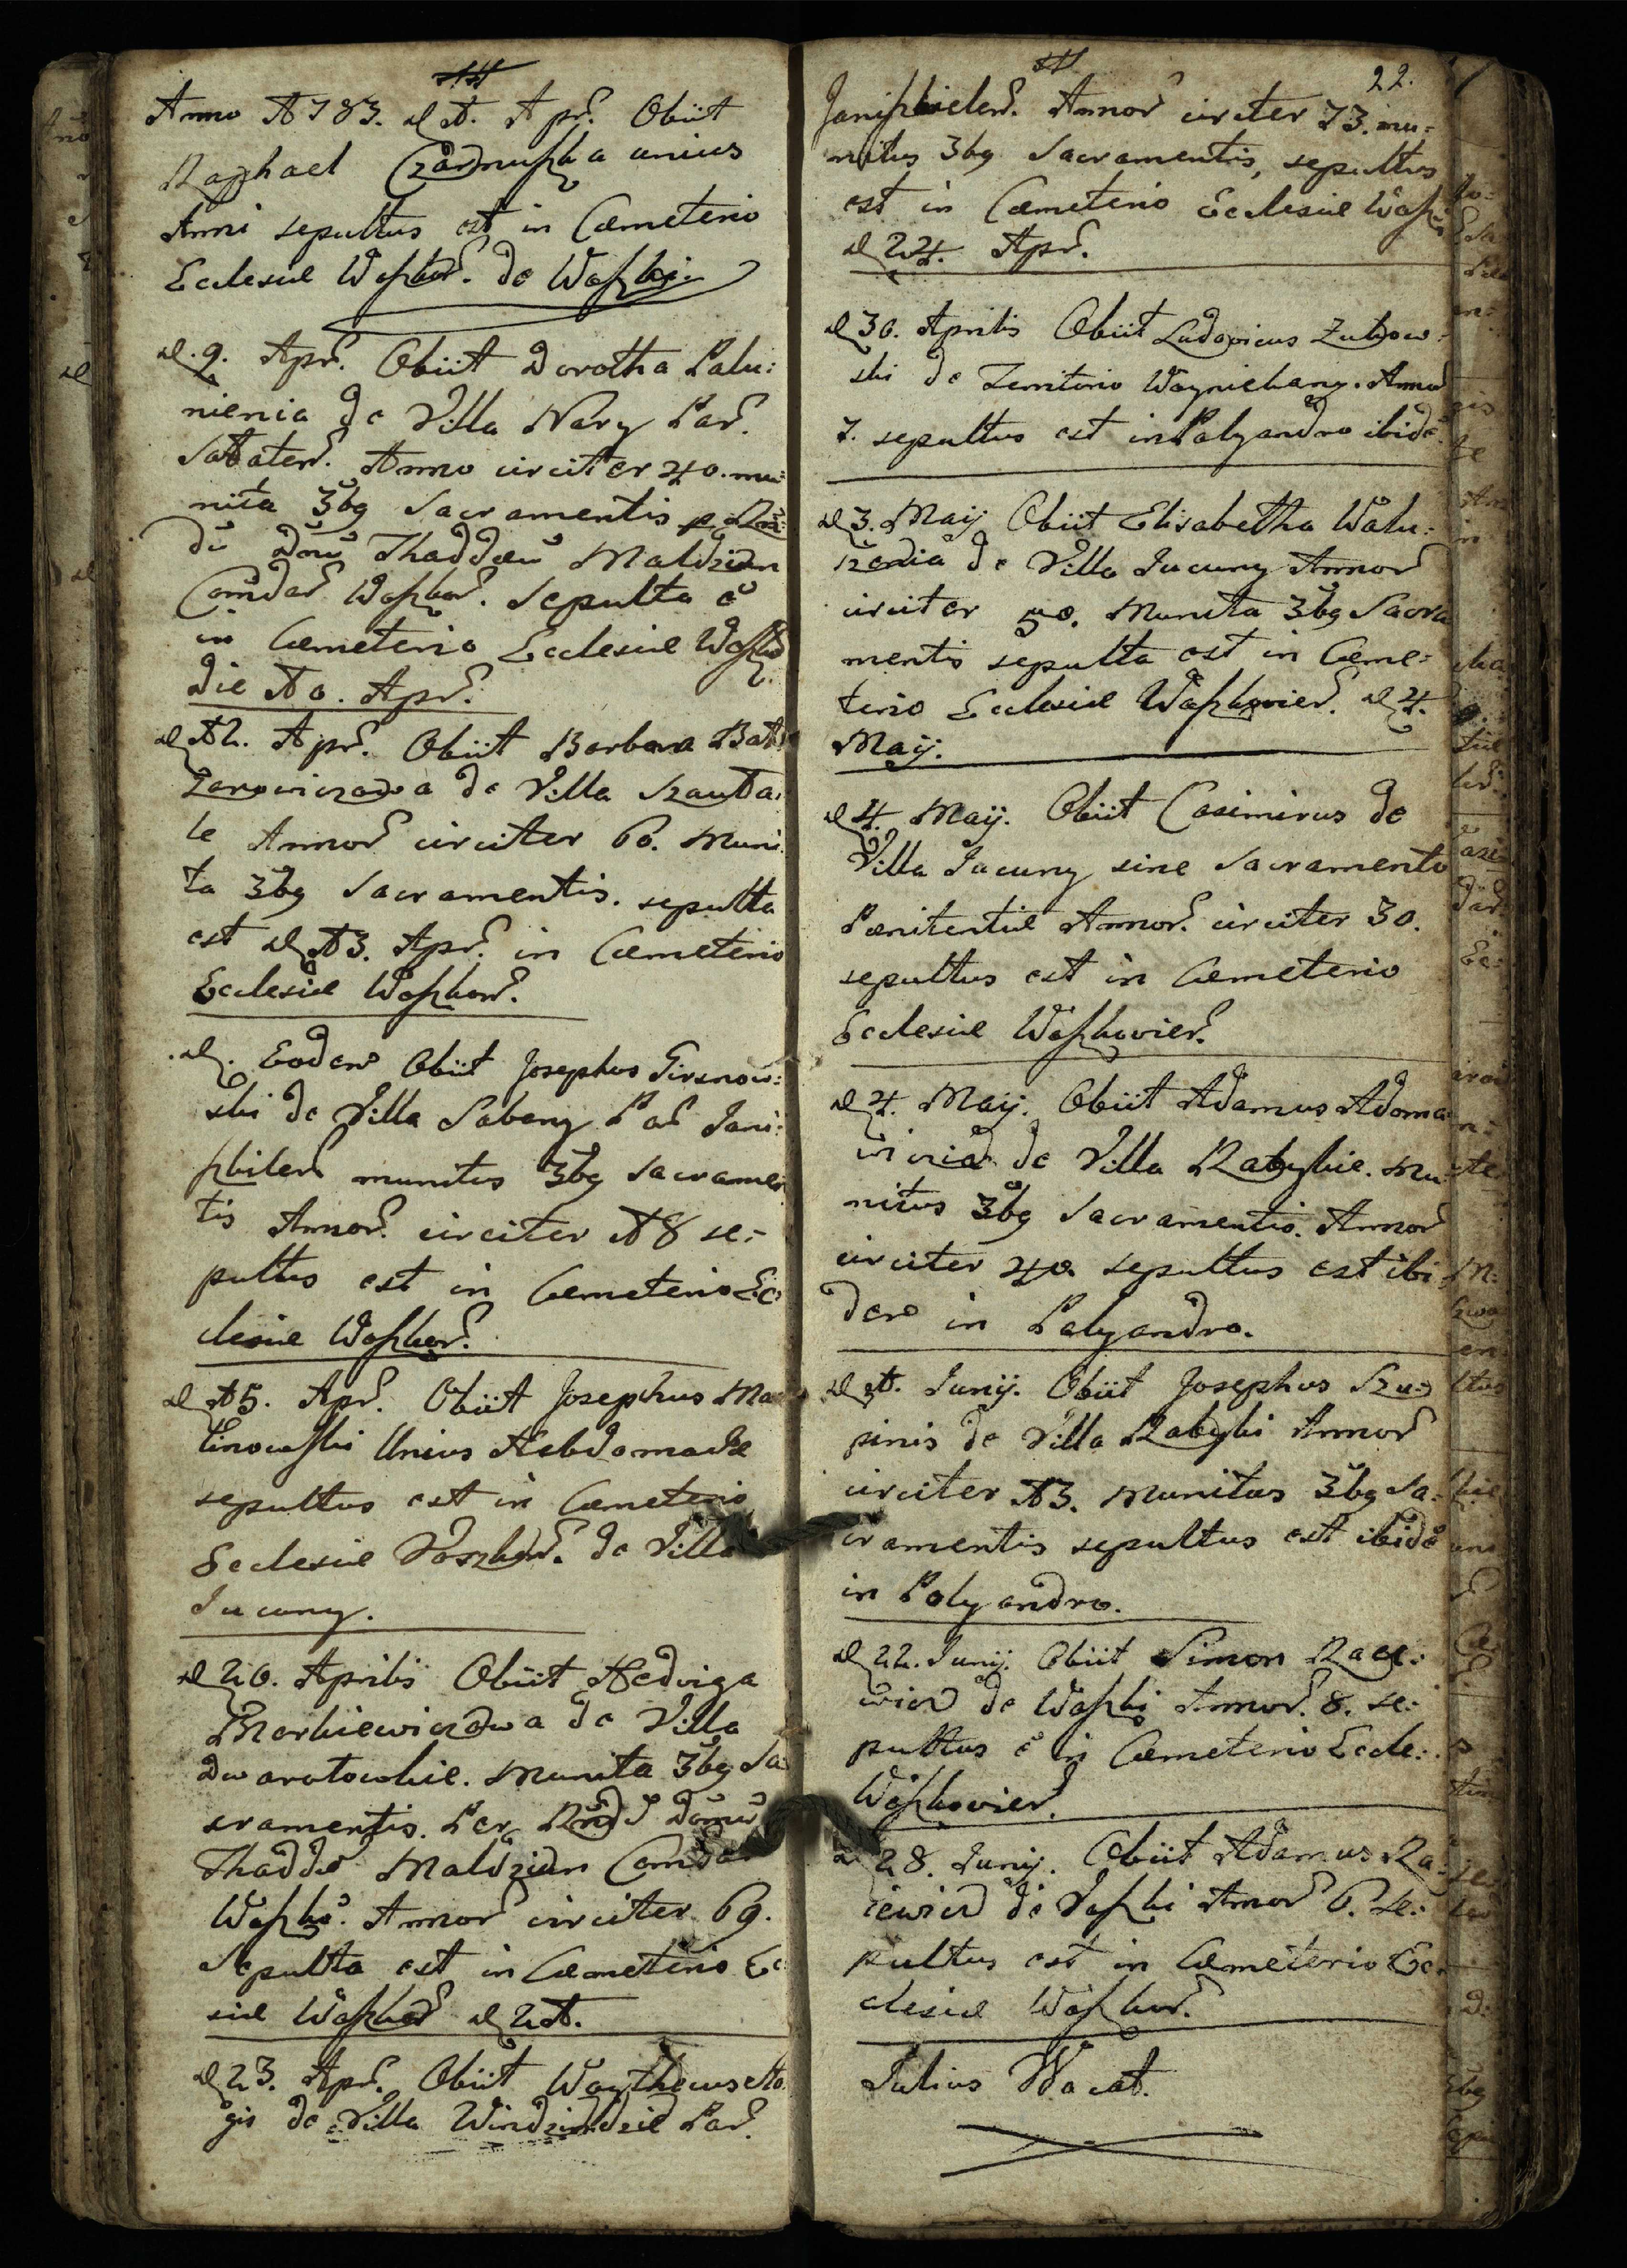 Anno 1783. d 1. Apr. Obiit
Raphael Czarnuszka unius
Anni sepultus est in Cæmeterio
Ecclesiæ Waszkow. de Waszki
d. 9. Apr. Obiit Dorotha Palu:
nienia de Villa Nary Par.
Sataten. Anno circiter 40. mu:
nita 3bg Sacramentis p Rn:
dū Dnū Thaddæū Maldzian
Comdar Waszkow. Sepulta ē
in Cæmeterio Ecclesiæ Waszko
Die 10. Apr.
d 12. Apr. Obiit Barbara Bat:
de Villa Szauda:
le Annor circiter 60. Muni:
ta 3bg Sacramentis. sepulta
est d 13. Apr. in Cæmeterio
Ecclesiæ Waszkow.
d. Eodem Obiit Josephus Girsnow:
ski de Villa Sabany Par Jani:
szkilen munitus 3bg Sacramen
tis Annor. circiter 18 se:
pultus est in Cæmeterio Ec
clesiæ Waszkow.
d 15. Apr. Obiit Josephus Ma
linowski Unius Hebdomadæ
sepultus est in Cæmeterio
Ecclesiæ Woszkow. de Villa
Jucuny.
d 20. Aprilis Obiit Hedviga
Markiewiczowa de Villa
Dwaratowkie. Munita 3bg Sa
cramentis. Per Rndū Domū
Thaddæū Maldzian Comdar
Waszko. Annor circiter 69.
Sepulta est in Cæmeterio Ec
siæ Waszkow d 21.
d 23. Apr. Obiit Woytheus
gis de Villa Par.
22.
Janiszkielen. Annor circiter 73. mu:
nitus 3bg Sacramentis, sepultus
est in Cæmeterio Ecclesiæ Waszk
d 24. Apr.
d 30. Aprilis Obiit Ludovicus Zubow:
ski de Territorio Woyniekany. Annor
7. sepultus est in Polyandro ibidē.
d 3. Maij Obiit Elisabetha Walu:
szenia de Villa Jucuny Annor
circiter 50. Munita 3bg Sacra
mentis sepulta est in Cæme:
terio Ecclesiæ Waszkovien. d 4.
Maij.
d 4. Maij. Obiit Casimirus de
Villa Jucuny sine Sacramento
Pænitentiæ Annor. circiter 30.
sepultus est in Cæmeterio
Ecclesiæ Waszkovien.
d 4. Maij. Obiit Adamus Adoma
wicz de Villa Rabykie. Mu:
nitus 3bg Sacramentis. Annor
circiter 40. sepultus est ibi:
dem in Polyandro.
d 1. Junij. Obiit Josephus Szu:
pinis de Villa Rabyki Annor
circiter 13. Munitus 3bg Sa:
cramentis sepultus est ibidē
in Polyandro.
d 22. Junij. Obiit Simon Race:
wicz de Waszki Annor. 8. se:
pultus ē in Cæmeterio Eccle:
Waszkovien.
d 28. Junij. Obiit Adamus Ra:
cewicz de Waszki Annor 6. se:
pultus est in Cæmeterio Ec:
clesiæ Waszkow.
Julius Wacat.